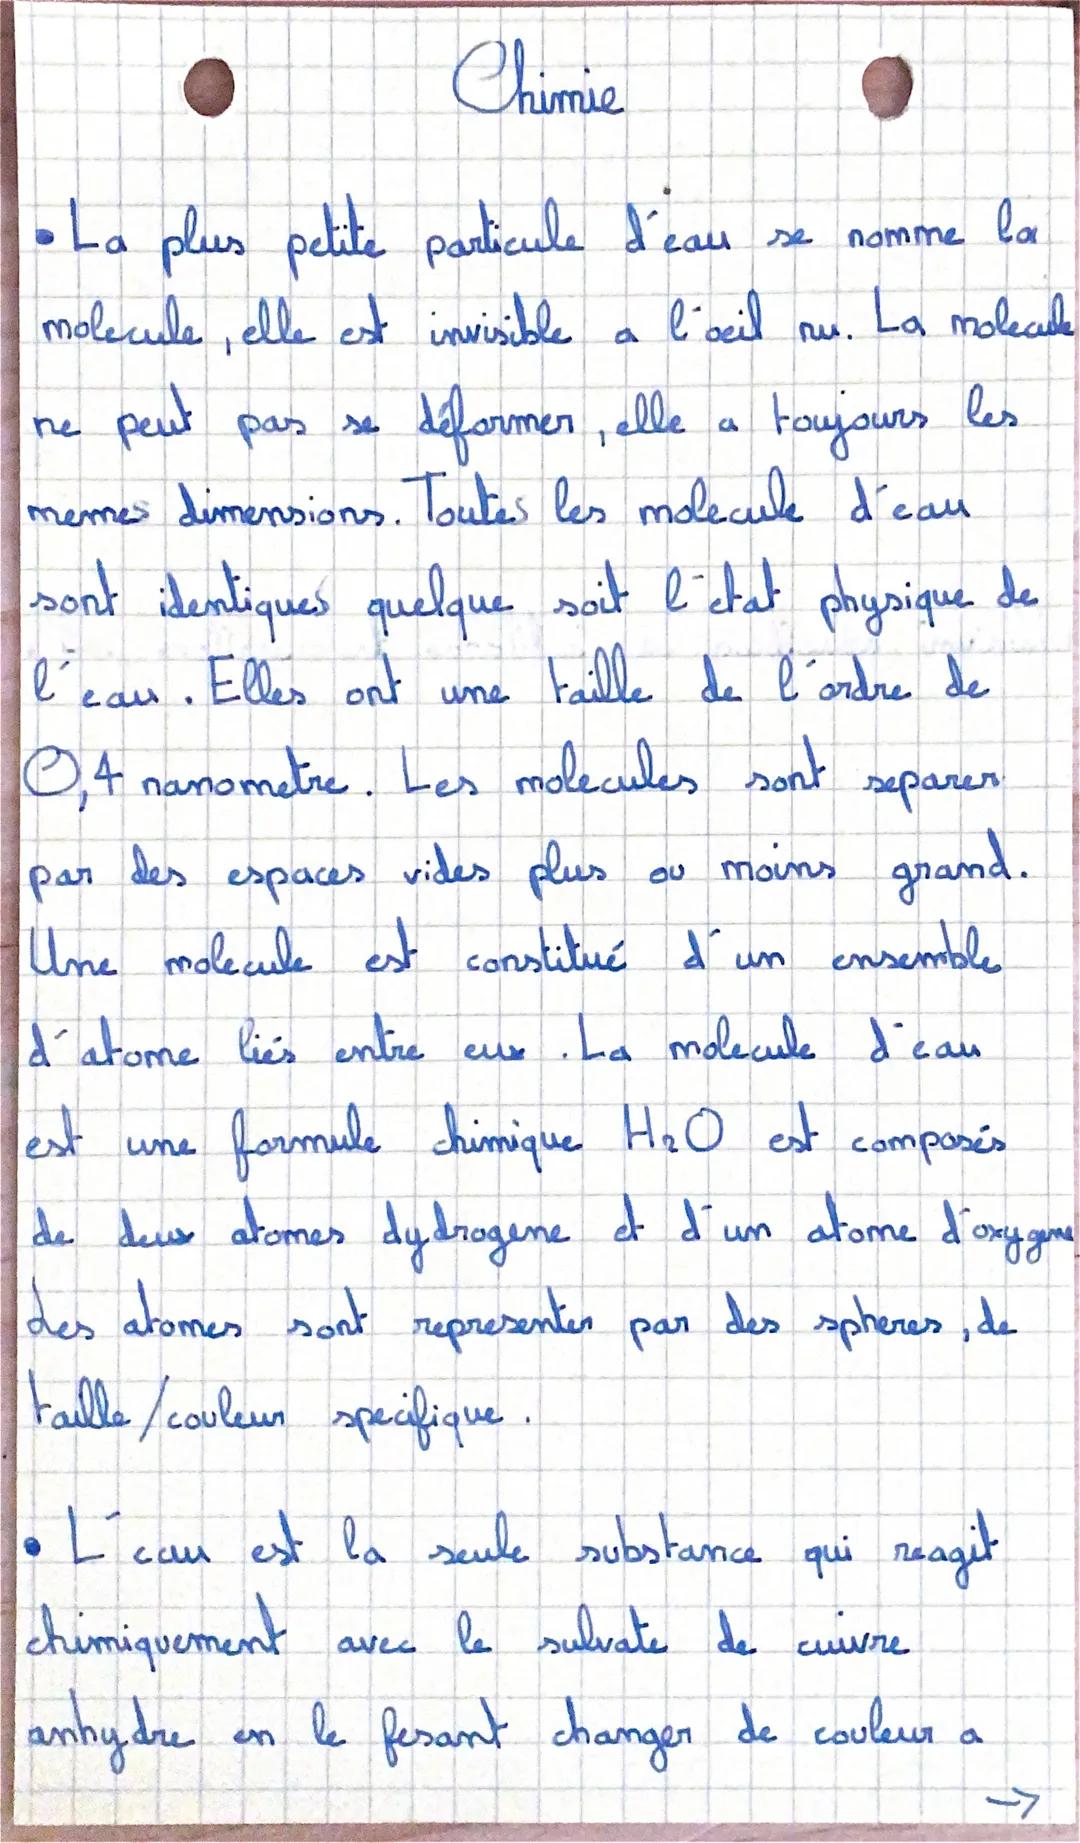 Chimie
• La plus petite particule d'eau se nomme la
molecule, elle est invisible a l'oeil nu. La molecule
ne peut pas se déformer, elle a toujours les
memes dimensions. Toutes les molecule d'eau
sont identiques quelque soit l'état physique de
l'eau. Elles ont une taille de l'ordre de
0,4 nanometre. Les molecules sont separer
par des espaces vides plus ou moins grand.
Une molecule est constitué d'un ensemble
d'atome liés entre eux. La molecule d'eau
est une formule chimique H₂O est composés
de deux atomes dydrogene et d'un atome d'oxygene
Les atomes sont representer par des spheres, de
taille/couleur specifique.
• L'eau est la seule substance qui reagit
chimiquement avec le sulvate de cuivre
anhydre en le fesant changer de couleur a
→